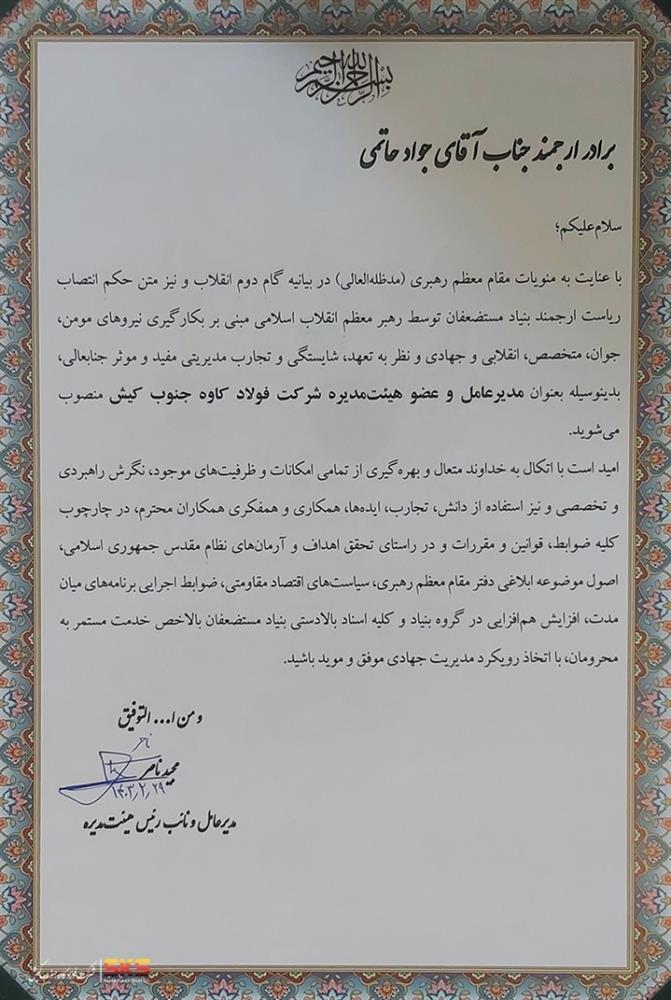 بسم الله الرحمن الرحیم
برادر ارجمند جناب آقای جواد حاتمی
سلام‌علیکم؛
با عنایت به منویات مقام معظم رهبری (مدظله‌العالی) در بیانیه گام دوم انقلاب و نیز متن حکم انتصاب
ریاست ارجمند بنیاد مستضعفان توسط رهبر معظم انقلاب اسلامی مبنی بر بکارگیری نیروهای مومن،
جوان، متخصص، انقلابی و جهادی و نظر به تعهد، شایستگی و تجارب مدیریتی مفید و موثر جنابعالی،
بدینوسیله بعنوان مدیرعامل و عضو هیئت‌مدیره شرکت فولاد کاوه جنوب کیش منصوب
می‌شوید.
امید است با اتکال به خداوند متعال و بهره‌گیری از تمامی امکانات و ظرفیت‌های موجود، نگرش راهبردی
و تخصصی و نیز استفاده از دانش، تجارب، ایده‌ها، همکاری و همفکری همکاران محترم، در چارچوب
کلیه ضوابط، قوانین و مقررات و در راستای تحقق اهداف و آرمان‌های نظام مقدس جمهوری اسلامی،
اصول موضوعه ابلاغی دفتر مقام معظم رهبری، سیاست‌های اقتصاد مقاومتی، ضوابط اجرایی برنامه‌های میان
مدت، افزایش هم‌افزایی در گروه بنیاد و کلیه اسناد بالادستی بنیاد مستضعفان بالاخص خدمت مستمر به
محرومان، با اتخاذ رویکرد مدیریت جهادی موفق و موید باشید.
و من ا... التوفیق
مجید ناصر
۱۴۰۳٫۲٫۲۹
مدیرعامل و نائب رئیس هیئت‌مدیره
SKS